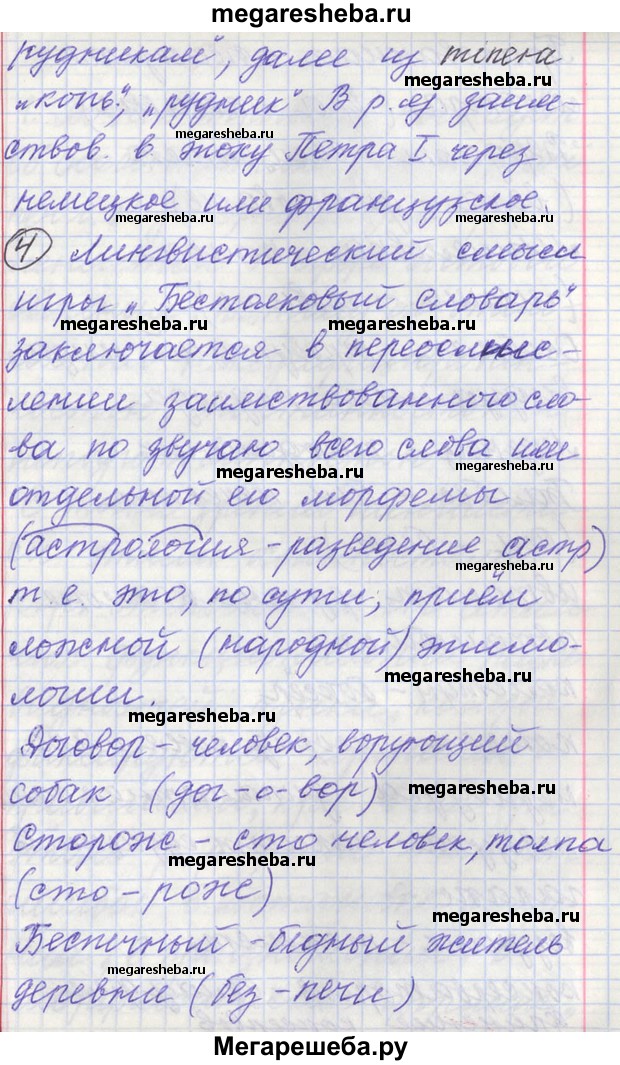 megaresheba.ru
рудникам", далее из minera
megaresheba.ru
„копь", „рудник" В р. яз заим-
megaresheba.ru
ствов. в эпоху Петра I через
немецкое или французское.
megaresheba.ru megaresheba.ru
4 Лингвистический смысл
игры „Бестолковый словарь"
megaresheba.ru megaresheba.ru
заключается в переосмыс-
лении заимствованного сло-
ва по звучаю всего слова или
megaresheba.ru
отдельной его морфемы
(астрология - разведение астр)
megaresheba.ru
т. е. это, по сути, приём
ложной (народной) этимо-
megaresheba.ru
логии.
megaresheba.ru
Договор - человек, ворующий
собак (дог-о-вор)
megaresheba.ru
Сторож - сто человек, толпа
megaresheba.ru
(сто - рож)
megaresheba.ru
Беспечный - бедный житель
megaresheba.ru
деревни (без - печи)
Мегарешеба.ру